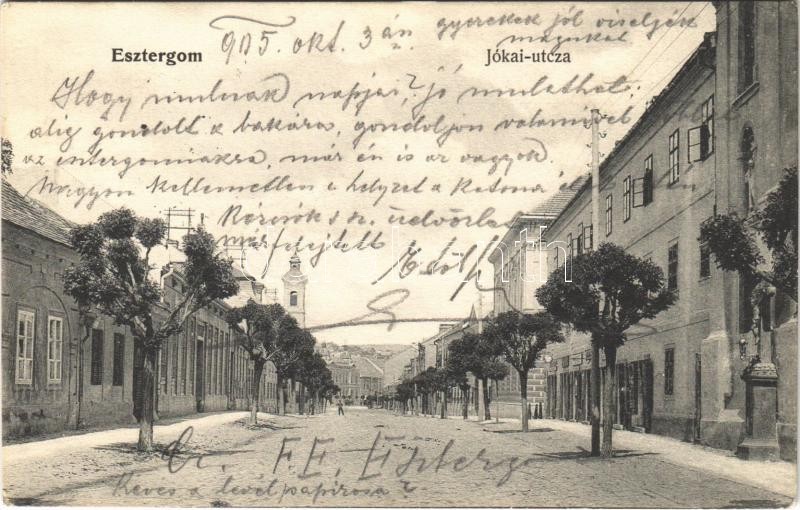 Esztergom
Jókai-utcza
905. okt. 3án gyerekek jól viseljék
magukat
Hogy mulnak napjai, jó mulathat.
alig gondolt a bakára, gondoljon valamivel
az esztergomiakra, már én is az vagyok.
Nagyon kellemetlen a helyzet a katona
üdvözlet
már felejtett
Adolf
Kevés a levélpapirosa?